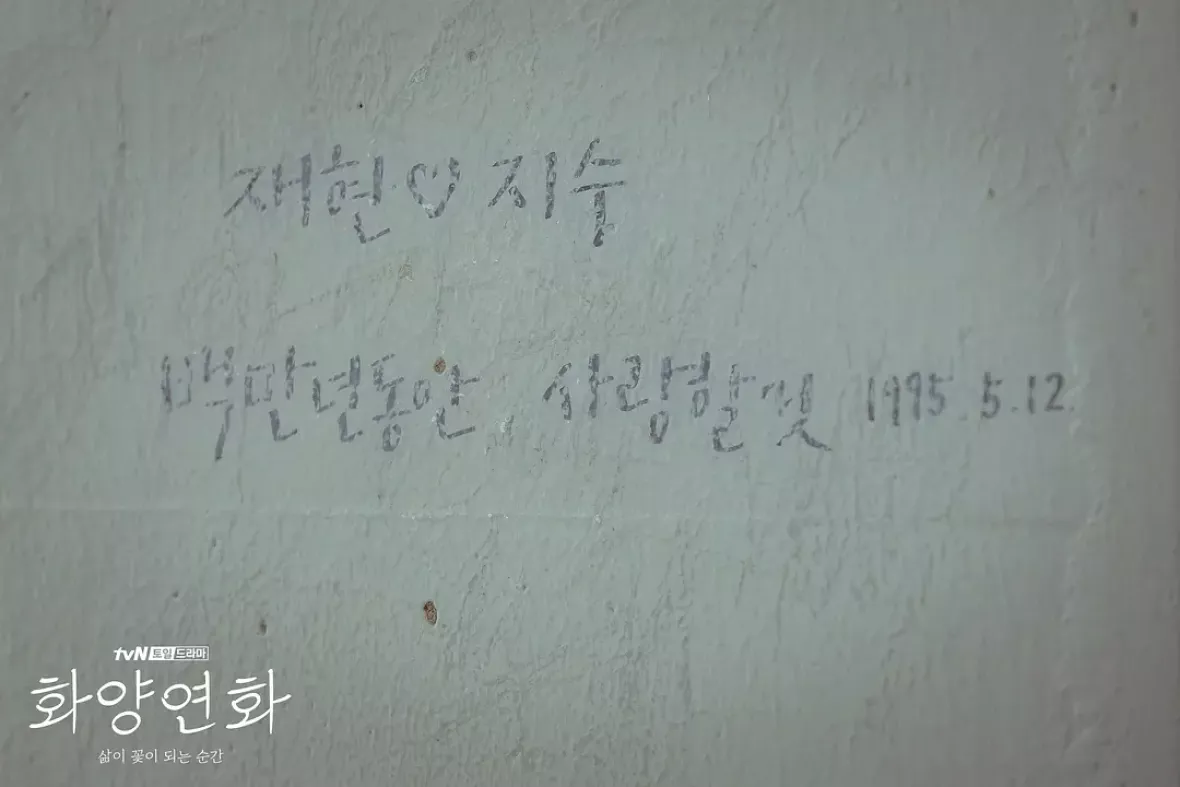 재현♡지수
백만년동안, 사랑할 것 1995.5.12.
tvN 토일드라마
화양연화
삶이 꽃이 되는 순간